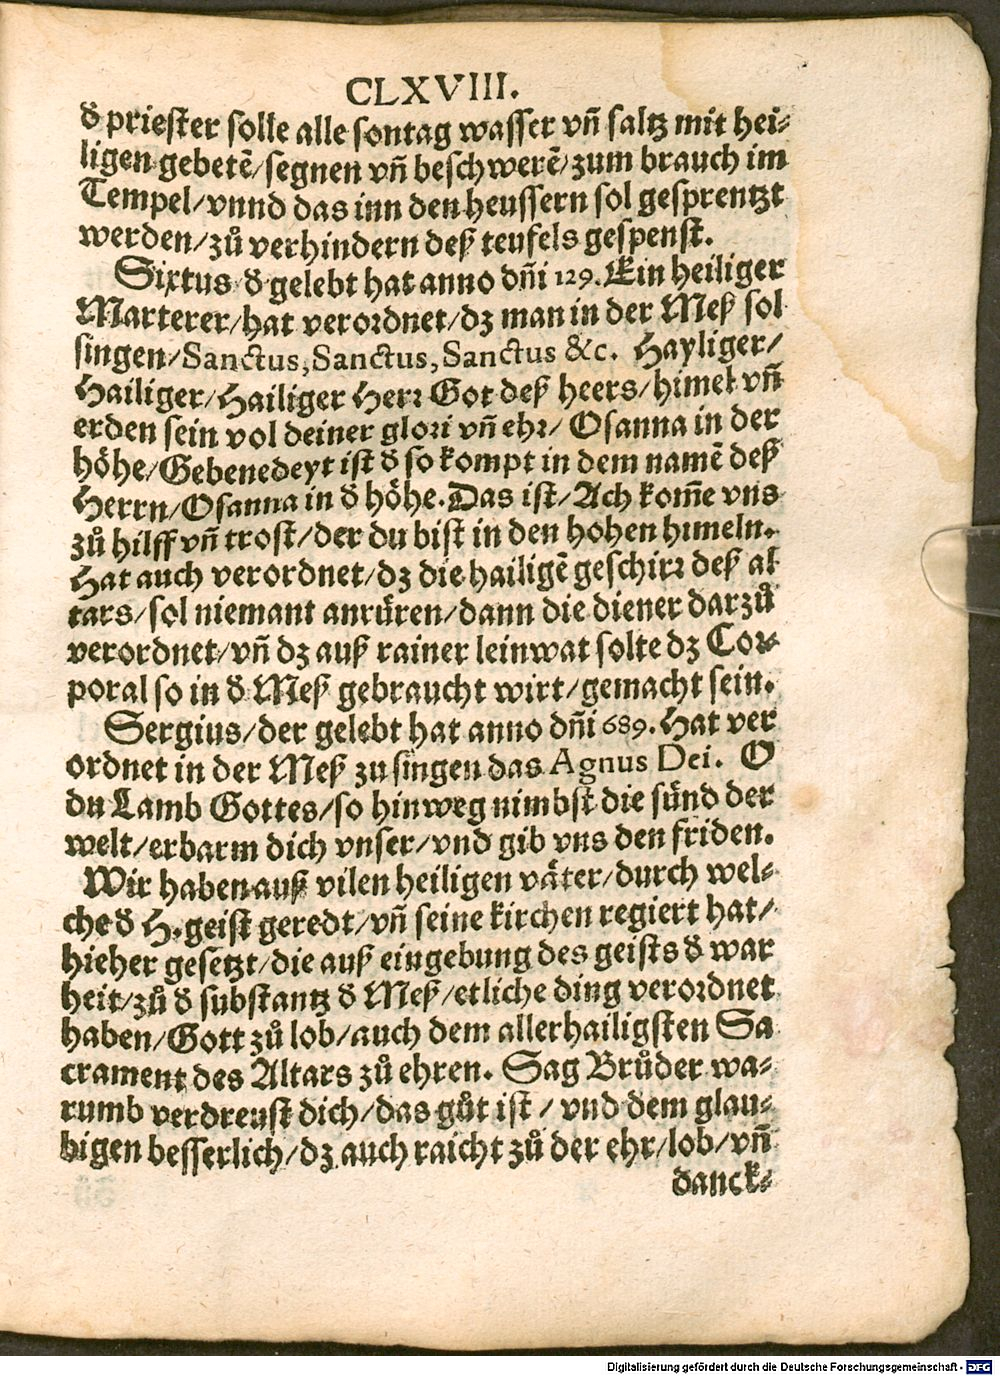 CLXVIII.
d̕ priester solle alle sontag wasser vn̄ saltz mit hei-
ligen gebetē/segnen vn̄ beschwerē/zum brauch im
Tempel/vnnd das inn den heussern sol gesprentzt
werden/zů verhindern deß teufels gespenst.
Sixtus d̕ gelebt hat anno dn̄i 129. Ein heiliger
Marterer/hat verordnet/dz man in der Meß sol
singen/Sanctus, Sanctus, Sanctus &c. Hayliger/
Hailiger/Hailiger Herr Got deß heers/himel vn̄
erden sein vol deiner glori vn̄ ehr/ Osanna in der
höhe/Gebenedeyt ist d̕ so kompt in dem namē deß
Herrn/Osanna in d̕ höhe. Das ist/Ach kom̄e vns
zů hilff vn̄ trost/der du bist in den hohen himeln.
Hat auch verordnet/dz die hailigē geschirr deß al
tars/sol niemant anrüren/dann die diener darzů
verordnet/vn̄ dz auß rainer leinwat solte dz Cor-
poral so in d̕ Meß gebraucht wirt/gemacht sein.
Sergius/der gelebt hat anno dn̄i 689. Hat ver
ordnet in der Meß zu singen das Agnus Dei. O
du Lamb Gottes/so hinweg nimbst die sünd der
welt/erbarm dich vnser/vnd gib vns den friden.
Wir haben auß vilen heiligen väter/durch wel-
che d̕ H. geist geredt/vn̄ seine kirchen regiert hat/
hieher gesetzt/die auß eingebung des geists d̕ war
heit/zů d̕ substantz d̕ Meß/etliche ding verordnet
haben/Gott zů lob/auch dem allerhailigsten Sa
crament des Altars zů ehren. Sag Brůder wa-
rumb verdreust dich/das gůt ist/ vnd dem glau-
bigen besserlich/dz auch raicht zů der ehr/lob/vn̄
danck-
Digitalisierung gefördert durch die Deutsche Forschungsgemeinschaft - DFG